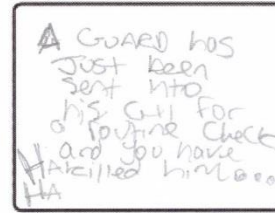 A GUARD has
Just been
sent into
his Cell for
a Routine Check
and you have
killed him...
HA
HA